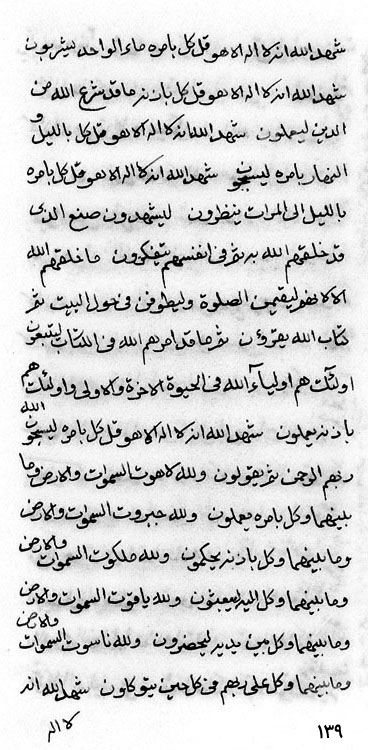 شهد الله انه لا اله الا هو قل كل بامره ماء الواحد يشربون
شهد الله انه لا اله الا هو قل كل باذنه ما قد شرع الله من
الدين ليعملون شهد الله انه لا اله الا هو قل كل بالليل و
النهار بامره ليسبحون شهد الله انه لا اله الا هو قل كل بامره
بالليل الى المرات ينظرون ليشهدون صنع الذى
قد خلقهم الله به ثم فى انفسهم يتفكرون ما خلقهم الله
الا لانفسهم ليقيمن الصلوة و ليطوفن فى حول البيت ثم
كتاب الله يقرؤن ثم ما قد امرهم الله فى الكتاب ليتبعون
اولئك هم اولياء الله فى الحيوة الاخرة والاولى واولئك هم
باذنه يعملون شهد الله انه لا اله الا هو قل كل بامره ليسبحون الله
ربهم الرحمن ثم يقولون ولله لاهوت السموات والارض وما
بينهما وكل بامره يعملون ولله جبروت السموات والارض
وما بينهما وكل باذنه يحكمون ولله ملكوت السموات والارض
وما بينهما وكل اليه ليبعثون ولله ياقوت السموات والارض
وما بينهما وكل بين يديه ليحضرون ولله ناسوت السموات والارض
وما بينهما وكل على ربهم فى كل حين يتوكلون شهد الله انه
لا اله
١٣٩